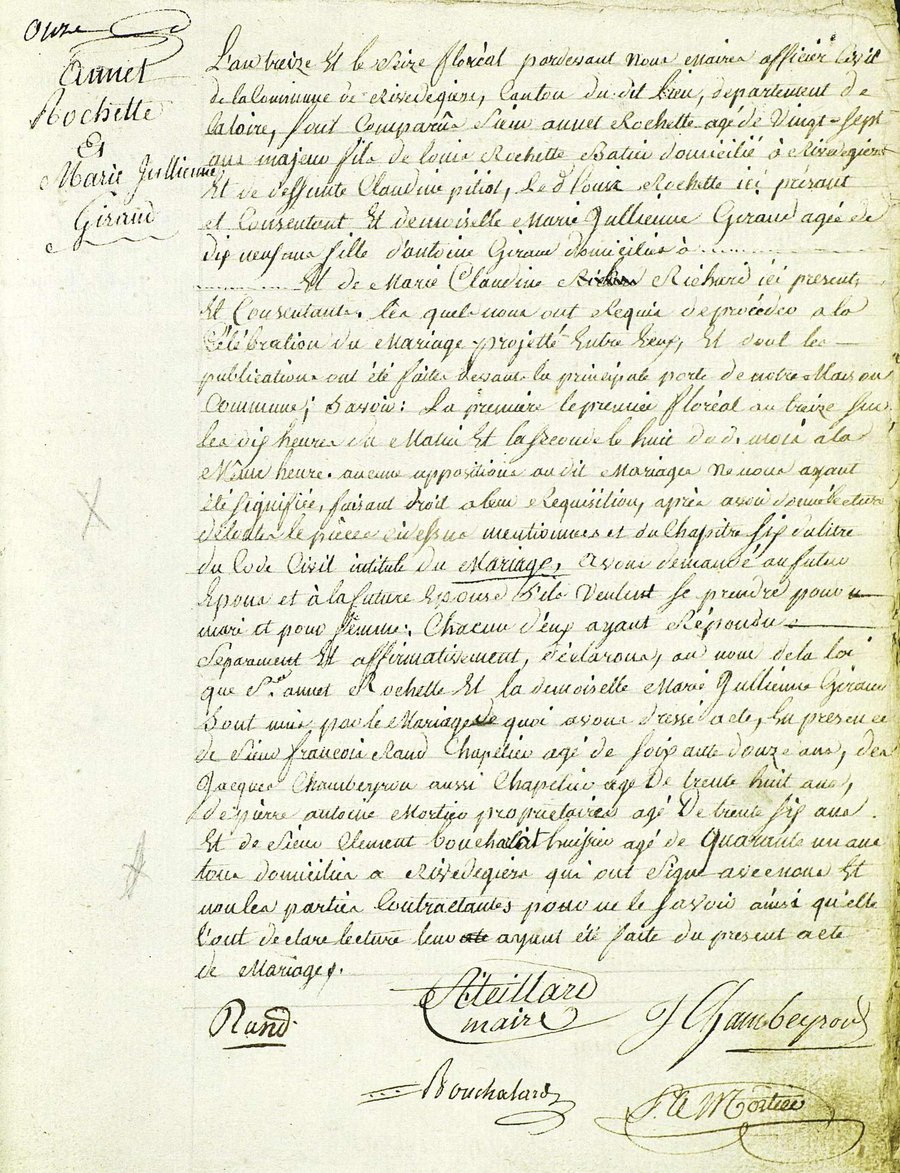 Onze
Annet
Rochette
Et
Marie Jullienne
Giraud
L'an treize Et le Seize floréal pardevant Nous Maire officier Civil
de la Commune de Rivedegiers, Canton du dit Lieu, departement de
la loire, sont Comparûs sieur annet Rochette agé de Vingt-Sept
ans majeur fils de louis Rochette domicilié à Rivedegiers
Et de deffunte Claudine, Le d. Louis Rochette ici présant
et Consentant Et demoiselle Marie Jullienne Giraud agée de
dix neuf ans fille d'antoine Giraud domiciliés à
Et de Marie Claudine Richard ici present,
Et Consentants. les quels nous ont Requis de procéder a la
Célébration du Mariage projetté Entre Eux, Et dont les
publications ont été faites devant la principale porte de notre Maison
Commune; Savoir: La première le premier floréal an treize sur
les dix heures du Matin Et la Seconde le huit dud. mois à la
Même heure. aucune opposition au dit Mariage Ne nous ayant
été Signifiée, faisant droit a leur Requisition, après avoir donné lecture
de toutes les pièces ci dessus mentionnées et du Chapitre six du titre
du Code Civil intitulé du Mariage, avons demandé au futur
Epoux et à la future Epouse s'ils Veulent se prendre pour
mari et pour femme: Chacun d'eux ayant Répondu
Séparément Et affirmativement, déclarons, au nom de la loi
que Sr. annet Rochette Et la demoiselle Marie Jullienne Giraud
Sont unis par le Mariage de quoi avons dressé acte, En presence
de Sieur françois Rand Chapelier agé de soixante douze ans, de
Jacques Chambeyron aussi Chapelier agé De trente huit ans,
de pierre antoine Mortier proprietaires agé De trente six ans
Et de Sieur Clement bouchalard huissier agé de Quarante un ans
tous domiciliés a Rivedegiers qui ont Signé avec nous Et
non les parties Contractantes pour ne le Savoir ainsi qu'elle
l'ont declaré lecture leur ayant été faite du present acte
de Mariage.
maire
Rand
J Chambeyron
Bouchalard
P A Mortier